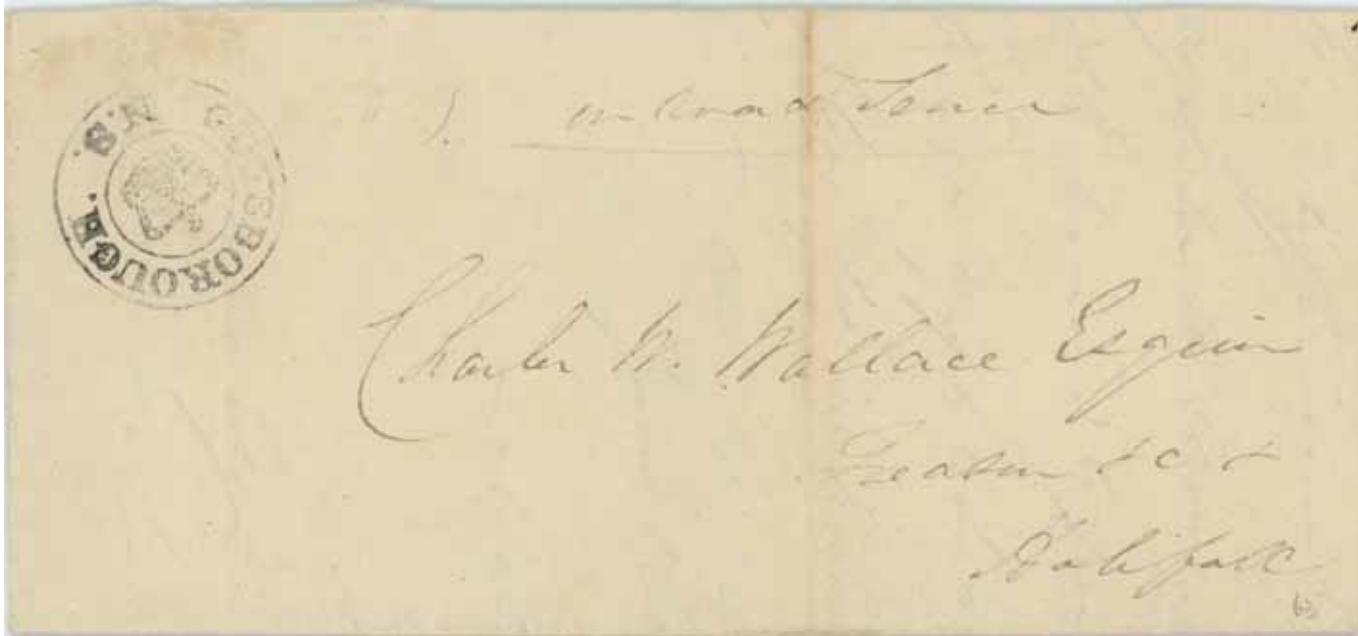 GUYSBOROUGH. N.S.
Charles W. Wallace Esquire
Treasurer &c &
Halifax